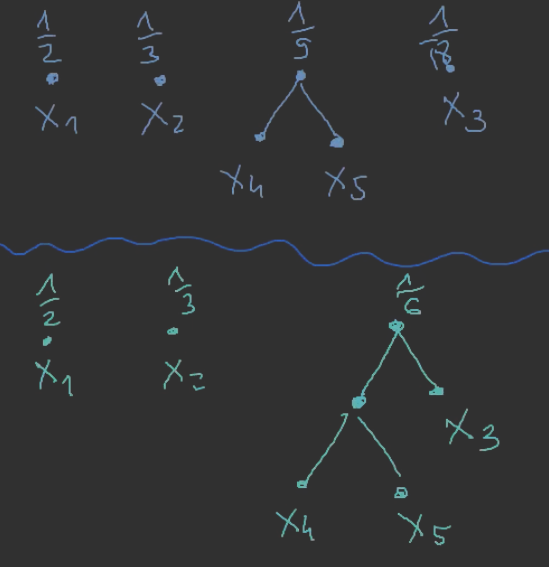 1/2 1/3 1/9 1/18
x1 x2 x3
x4 x5
1/2 1/3 1/6
x1 x2
x3
x4 x5